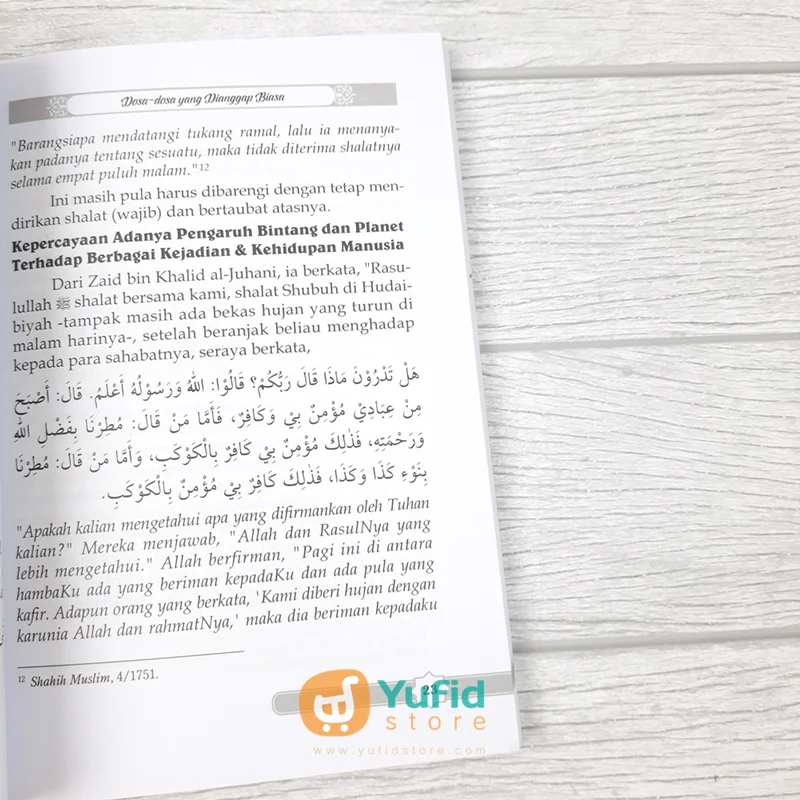 Dosa-dosa yang Dianggap Biasa
"Barangsiapa mendatangi tukang ramal, lalu ia menanya-
kan padanya tentang sesuatu, maka tidak diterima shalatnya
selama empat puluh malam."12
Ini masih pula harus dibarengi dengan tetap men-
dirikan shalat (wajib) dan bertaubat atasnya.
Kepercayaan Adanya Pengaruh Bintang dan Planet
Terhadap Berbagai Kejadian & Kehidupan Manusia
Dari Zaid bin Khalid al-Juhani, ia berkata, "Rasu-
lullah ﷺ shalat bersama kami, shalat Shubuh di Hudai-
biyah -tampak masih ada bekas hujan yang turun di
malam harinya-, setelah beranjak beliau menghadap
kepada para sahabatnya, seraya berkata,
هَلْ تَدْرُوْنَ مَاذَا قَالَ رَبُّكُمْ؟ قَالُوْا: اللهُ وَرَسُوْلُهُ أَعْلَمُ. قَالَ: أَصْبَحَ
مِنْ عِبَادِيْ مُؤْمِنٌ بِيْ وَكَافِرٌ، فَأَمَّا مَنْ قَالَ: مُطِرْنَا بِفَضْلِ اللهِ
وَرَحْمَتِهِ، فَذٰلِكَ مُؤْمِنٌ بِيْ كَافِرٌ بِالْكَوْكَبِ، وَأَمَّا مَنْ قَالَ: مُطِرْنَا
بِنَوْءِ كَذَا وَكَذَا، فَذٰلِكَ كَافِرٌ بِيْ مُؤْمِنٌ بِالْكَوْكَبِ.
"Apakah kalian mengetahui apa yang difirmankan oleh Tuhan
kalian?" Mereka menjawab, "Allah dan RasulNya yang
lebih mengetahui." Allah berfirman, "Pagi ini di antara
hambaKu ada yang beriman kepadaKu dan ada pula yang
kafir. Adapun orang yang berkata, 'Kami diberi hujan dengan
karunia Allah dan rahmatNya,' maka dia beriman kepadaku
12 Shahih Muslim, 4/1751.
23
Yufid
store
www.yufidstore.com